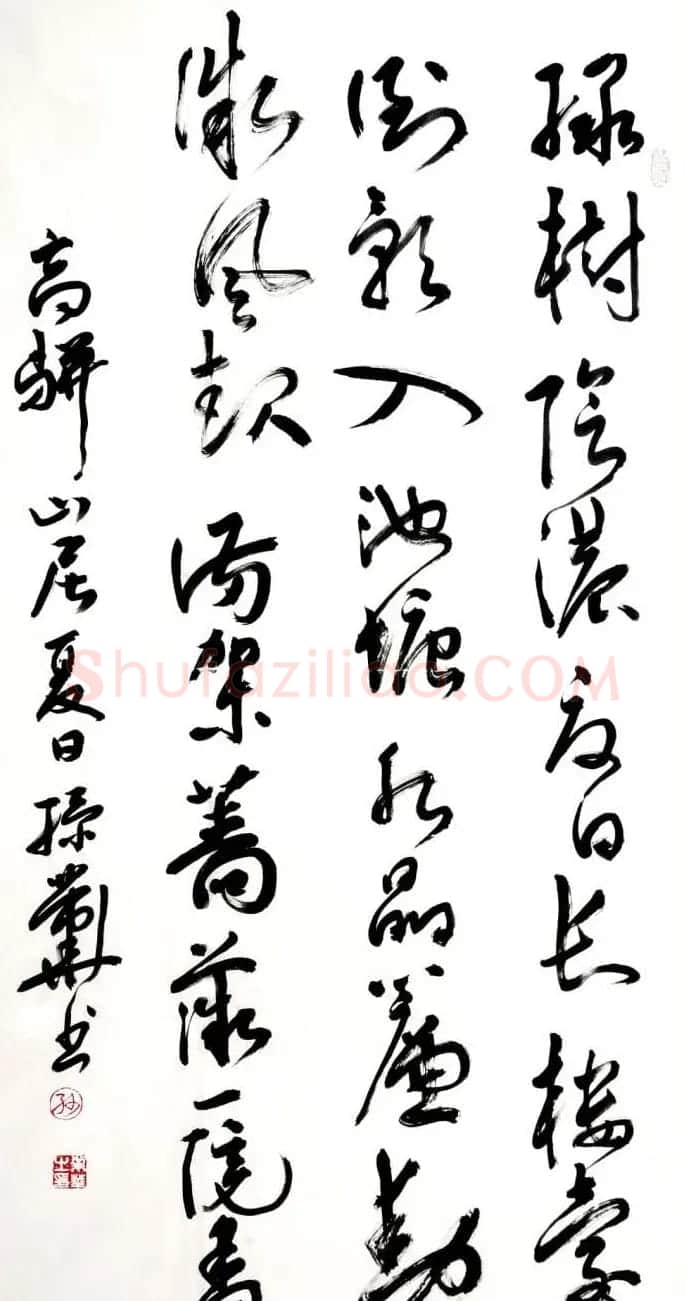 綠樹陰濃夏日長樓臺
倒影入池塘水晶簾動
微風起滿架薔薇一院香
高駢山居夏日孫書
Shufaziliao.COM